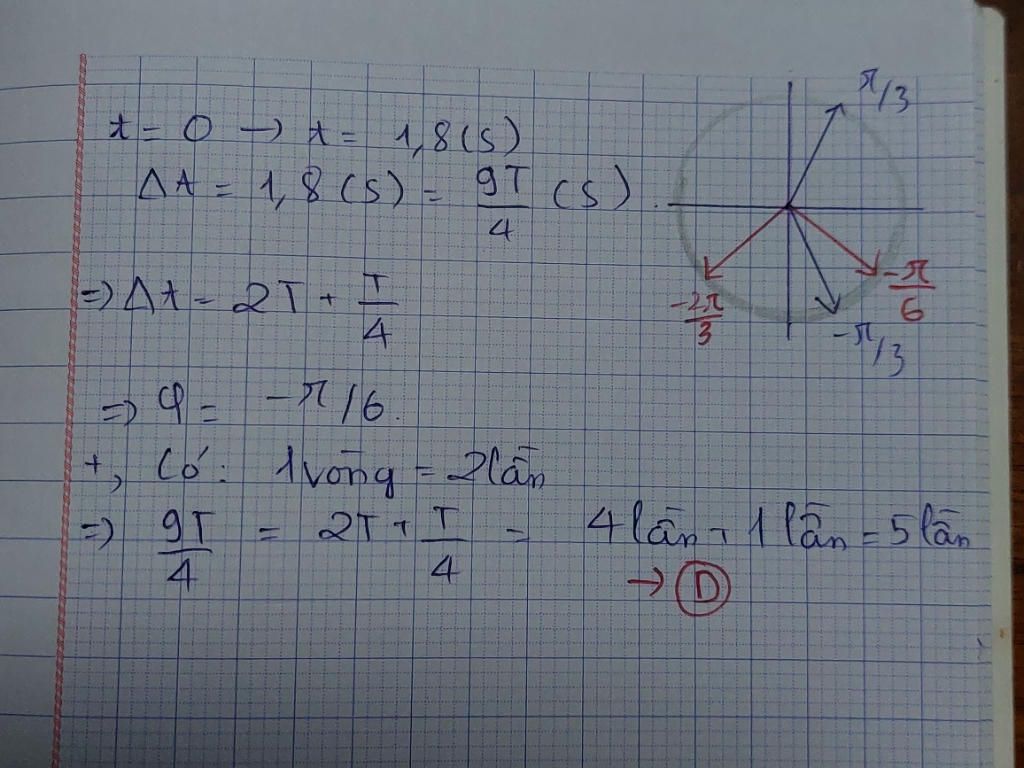 t = 0 → t = 1,8 (s)
Δt = 1,8 (s) = 9T/4 (s).
⇒ Δt = 2T + T/4
⇒ φ = -π/6.
+, Có: 1 vòng = 2 lần
⇒ 9T/4 = 2T + T/4 = 4 lần + 1 lần = 5 lần
→ D
π/3
-π/6
-2π/3
-π/3